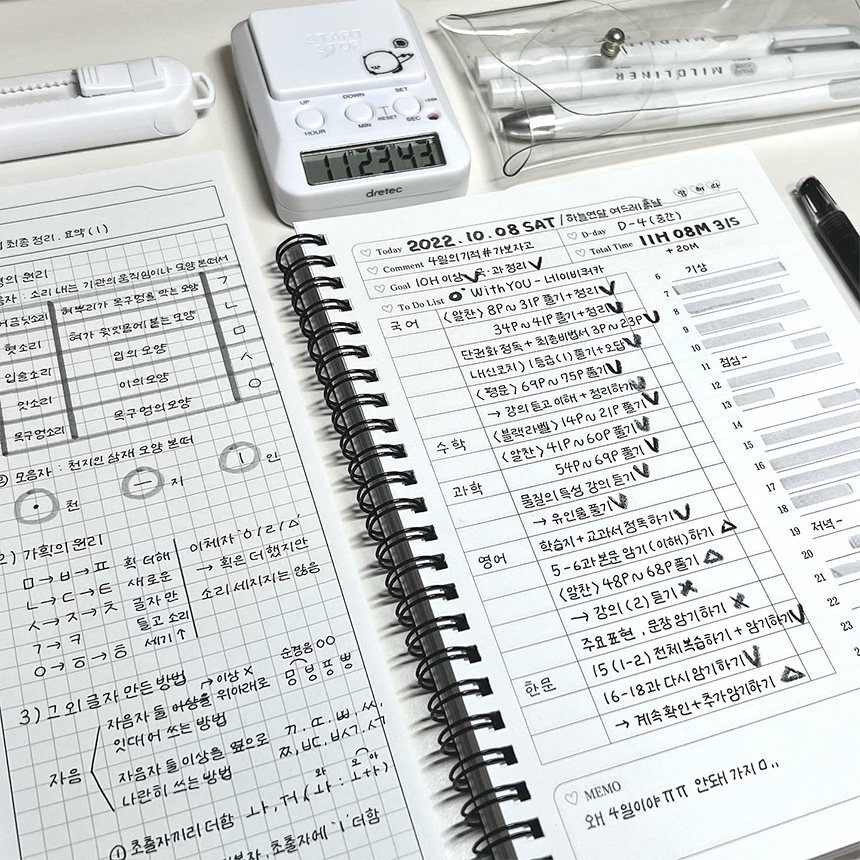 START
STOP
UP
DOWN
SET
HOUR
MIN
RESET
SEC
112343
dretec
MILDLINER
MILDLINER
최종정리. 요약(1)
의 원리
자음자 : 소리 내는 기관의 움직임이나 모양 본떠서
어금닛소리 혀뿌리가 목구멍을 막는 모양 ㄱ
혓소리 혀가 윗잇몸에 붙는 모양 ㄴ
입술소리 입의 모양 ㅁ
잇소리 이의 모양 ㅅ
목구멍소리 목구멍의 모양 ㅇ
② 모음자 : 천지인 삼재 모양 본떠
• 천 ㅡ 지 ㅣ 인
2) 가획의 원리
ㅁ → ㅂ → ㅍ
ㄴ → ㄷ → ㅌ
ㅅ → ㅈ → ㅊ
ㄱ → ㅋ
ㅇ → ㆆ → ㅎ
획 더해
새로운
글자 만
들고 소리
세기↑
이체자 ㆁ/ㄹ/ㅿ
→ 획은 더했지만
소리 세지지는 않음
3) 그 외 글자 만든 방법
자음
→ 이상 X
자음자 둘 이상을 위아래로
잇대어 쓰는 방법
순경음 OO
ㅱ ㅸ ㆄ ㅹ
자음자 둘 이상을 옆으로
나란히 쓰는 방법
ㄲ. ㄸ. ㅃ. ㅆ.
① 초출자끼리 더함 ㅘ, ㅝ
초출자에 'ㅣ' 더함
Today 2022. 10. 08 SAT / 하늘연달 여드레 흙날
D-day D-4 (중간)
Comment 4월의기적 #가보자고
Total Time 11H 08M 31S
+ 20M
Goal 10H 이상 ✓ 국·과 정리 ✓
To Do List With YOU - 네이버카
국어 〈알찬〉 8P~31P 풀기+정리 ✓
34P~41P 풀기+정리 ✓
단권화 정독 + 최종비법서 3P~23P ✓
내신코치) 1등급(1) 풀기+오답 ✓
〈평문〉 69P~75P 풀기 ✓
→ 강의 듣고 이해 + 정리하기
수학 〈블랙라벨〉 14P~21P 풀기 ✓
〈알찬〉 41P~60P 풀기 ✓
54P~69P 풀기 ✓
과학 물질의 특성 강의 듣기 ✓
→ 유인물 풀기 ✓
학습지+교과서 정독하기 ✓
영어 5-6과 본문 암기(이해)하기 △
〈알찬〉 48P~68P 풀기 △
→ 강의 (2) 듣기 ✗
주요표현, 문장 암기하기 ✗
15 (1-2) 전체복습하기 + 암기하기 ✓
한문 16-18과 다시 암기하기 ✓
→ 계속 확인 + 추가암기하기 △
6 기상
7
8
9
10
11 점심-
12
13
14
15
16
17
18
19 저녁-
20
21
22
23
MEMO
왜 4일이야 ㅠㅠ 안돼 가지마..